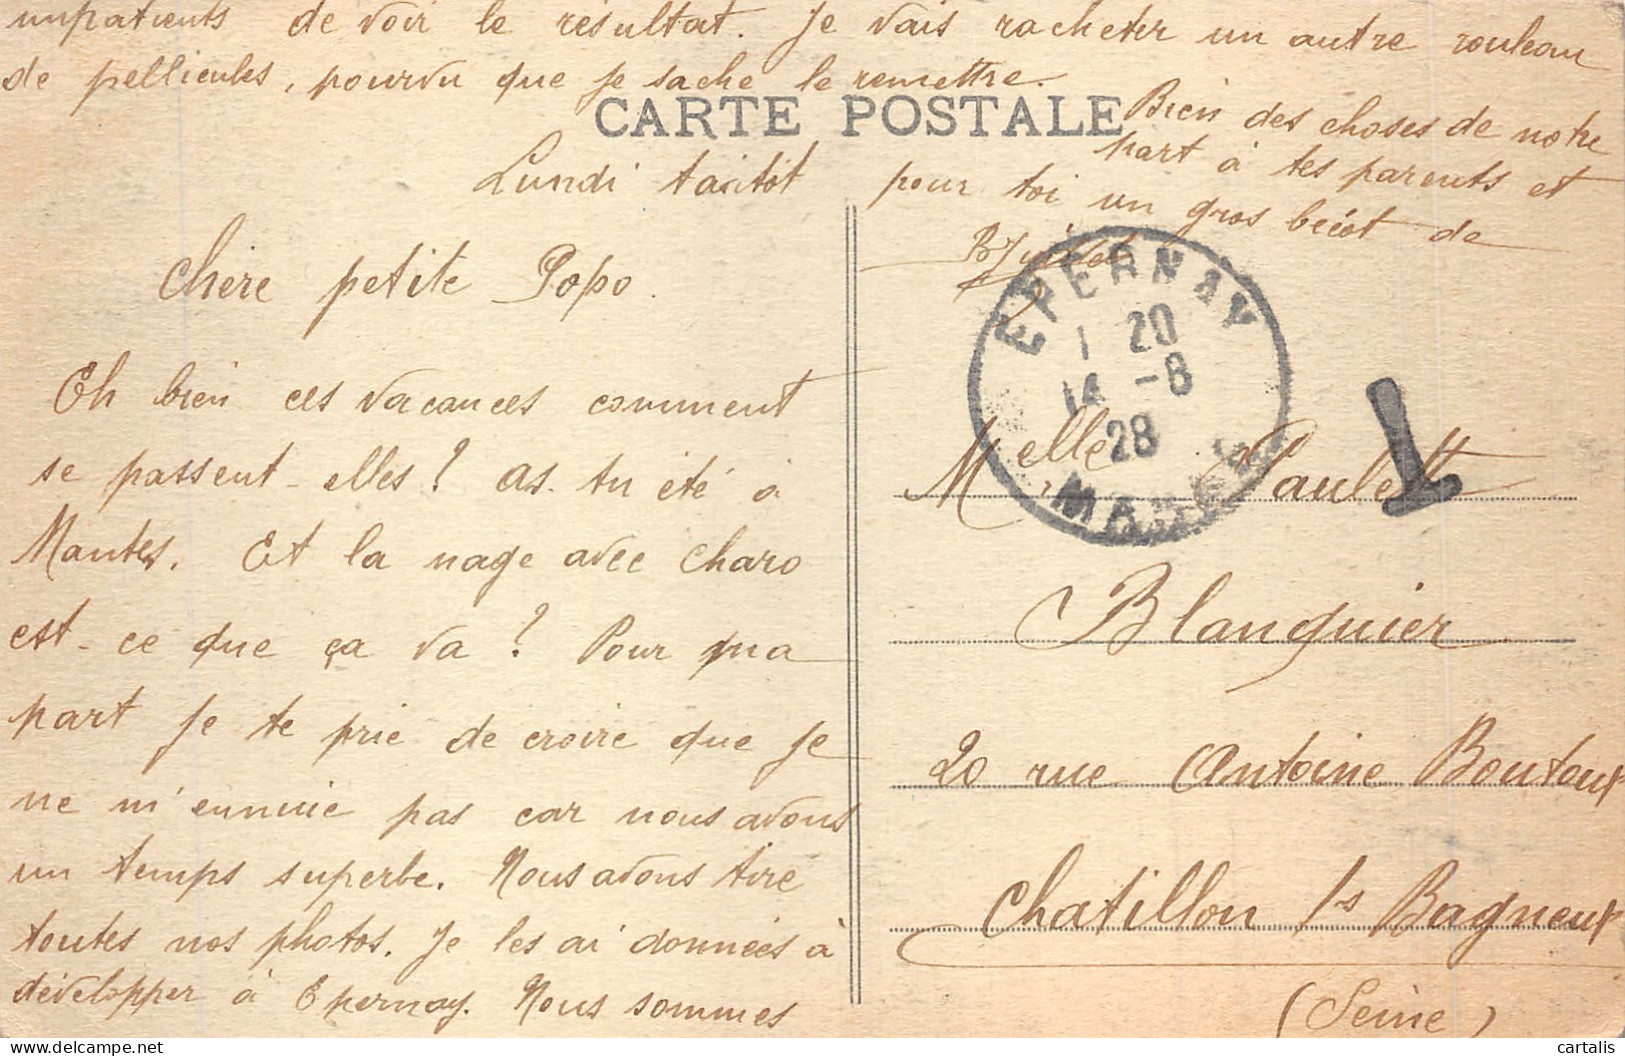 CARTE POSTALE
Lundi tantôt
Chère petite Popo.
Eh bien ces vacances comment
se passent-elles ? As-tu été à
Mantes. Et la nage avec Charo
est-ce que ça va ? Pour ma
part je te prie de croire que je
ne m'ennuie pas car nous avons
un temps superbe. Nous avons tiré
toutes nos photos. Je les ai données à
développer à Epernay. Nous sommes
impatients de voir le résultat. Je vais racheter un autre rouleau
de pellicules, pourvu que je sache le remettre.
Bien des choses de notre
part à tes parents et
pour toi un gros bécot de
EPERNAY
1 20
14 -8
28
MARNE
T
Melle Paulette
Blanquier
20 rue Antoine Boutoux
Chatillon /s Bagneux
(Seine)
cartalis
delcampe.net